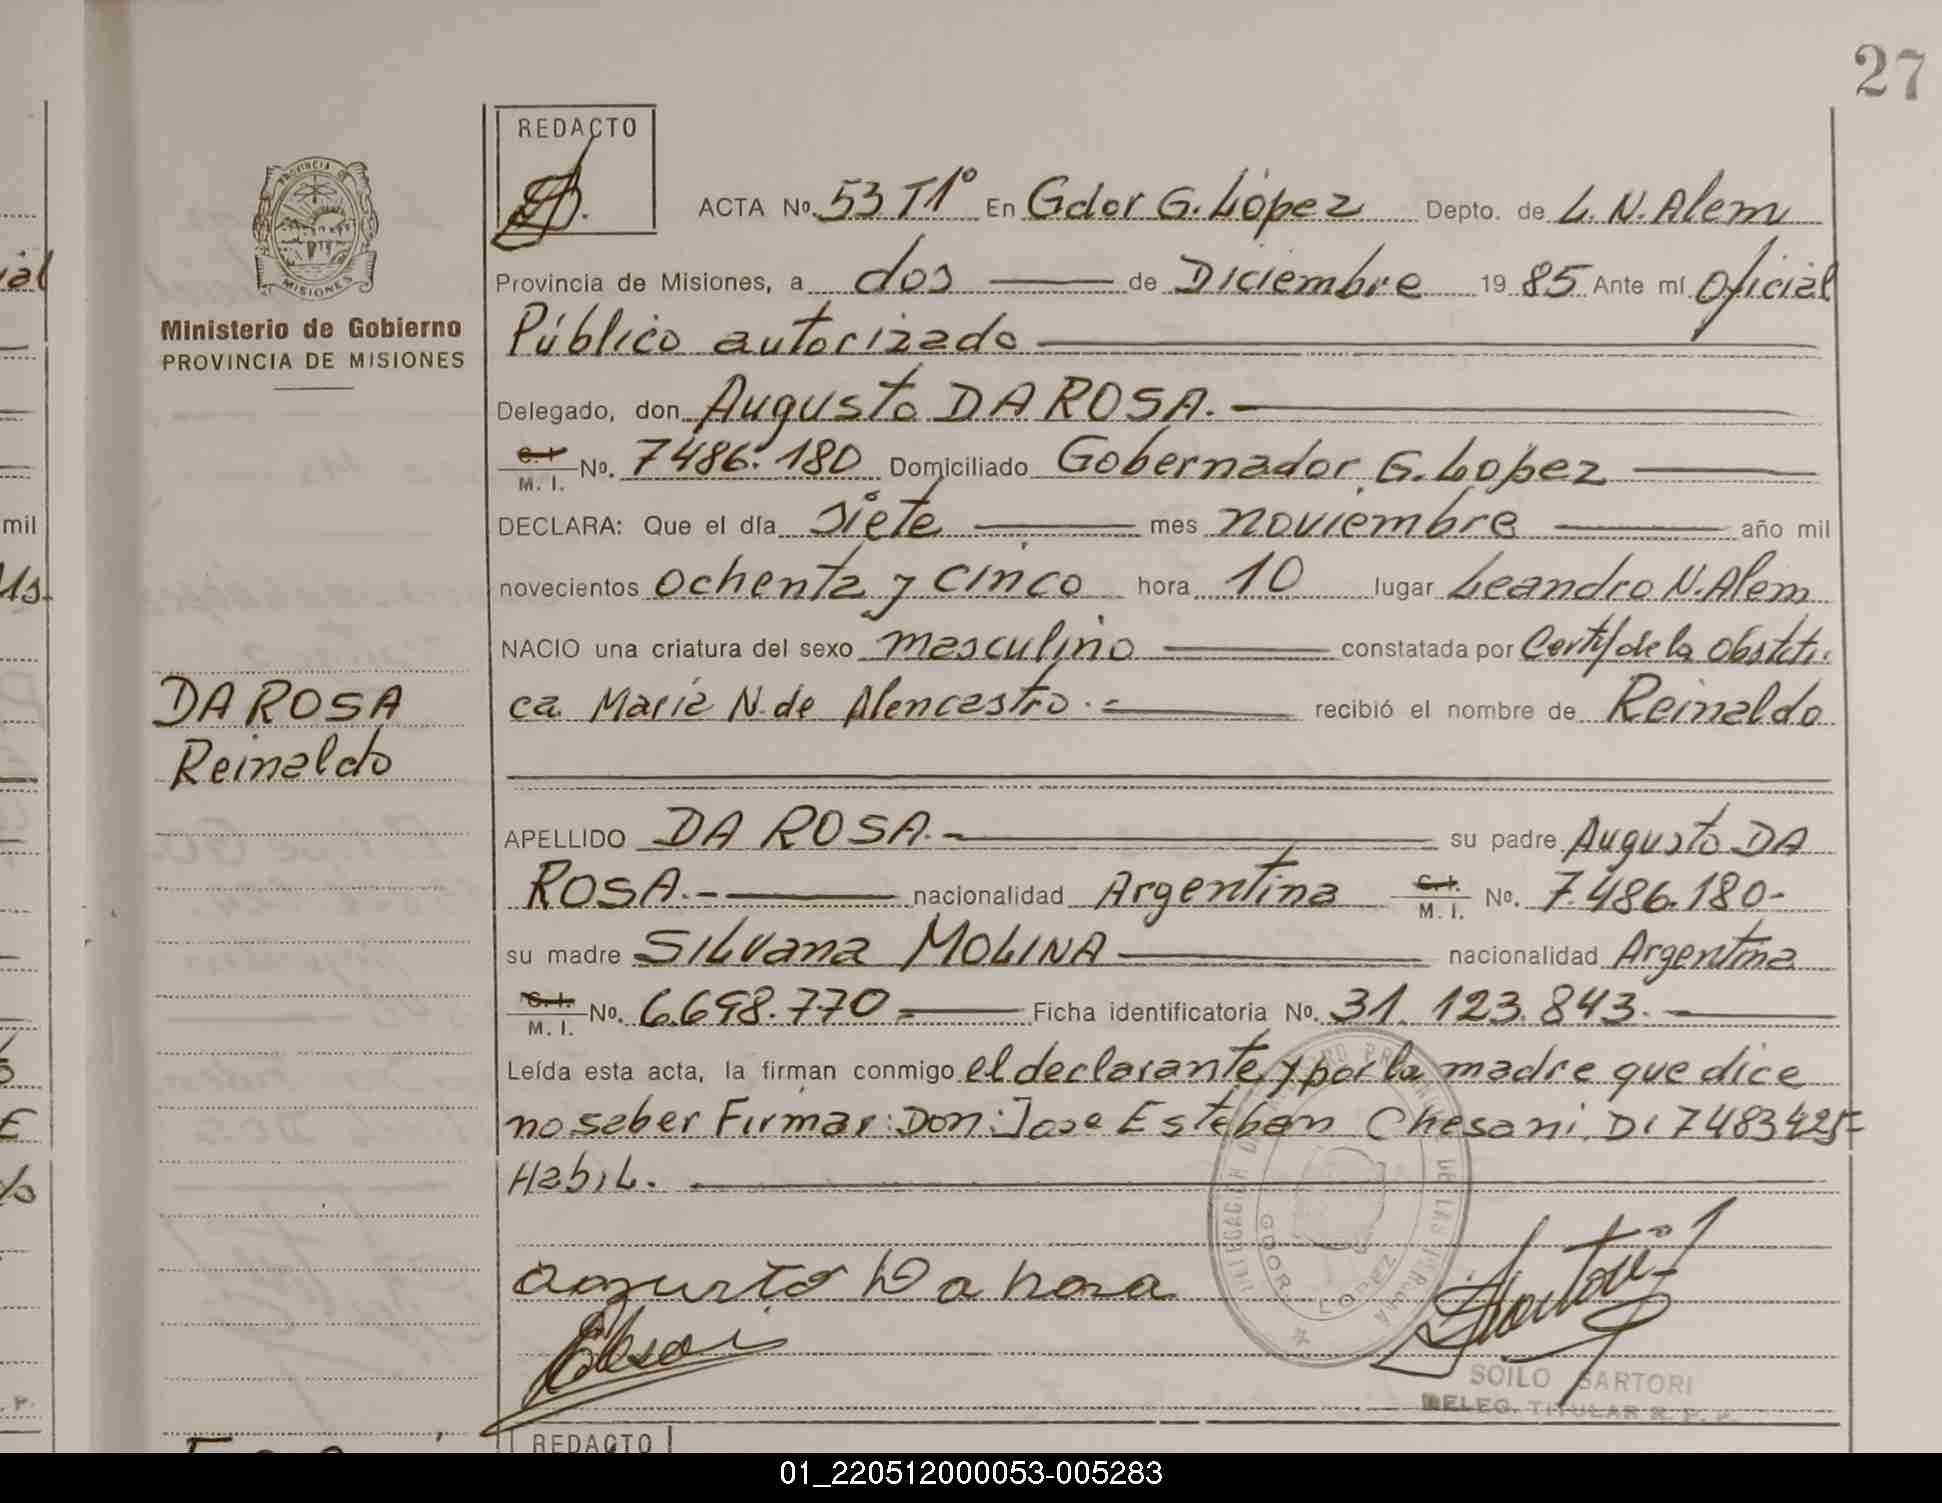 27
REDACTO
PROVINCIA DE
MISIONES
Ministerio de Gobierno
PROVINCIA DE MISIONES
ACTA Nº. 53 T1º En Gdor G. López Depto. de L. N. Alem
Provincia de Misiones, a dos de Diciembre 1985 Ante mí Oficial
Público autorizado
Delegado, don Augusto DA ROSA.
C. I. M. I. Nº. 7486.180 Domiciliado Gobernador G. Lopez
DECLARA: Que el día siete mes noviembre año mil
novecientos ochenta y cinco hora 10 lugar Leandro N. Alem
NACIO una criatura del sexo masculino constatada por Certif de la obstetri
ca Maria N. de Alencastro. recibió el nombre de Reinaldo
DA ROSA
Reinaldo
APELLIDO DA ROSA. su padre Augusto DA
ROSA. nacionalidad Argentina C. I. M. I. Nº. 7.486.180-
su madre SILVana MOLINA nacionalidad Argentina
C. I. M. I. Nº. 6.698.770 Ficha identificatoria Nº. 31.123.843.
Leída esta acta, la firman conmigo el declarante y por la madre que dice
no saber Firmar: Don: Jose Esteban Chesani. DI 7483425-
Habil.
augusto Da rosa
SOILO SARTORI
DELEG. TITULAR R. P. P.
REDACTO
mil
01_220512000053-005283